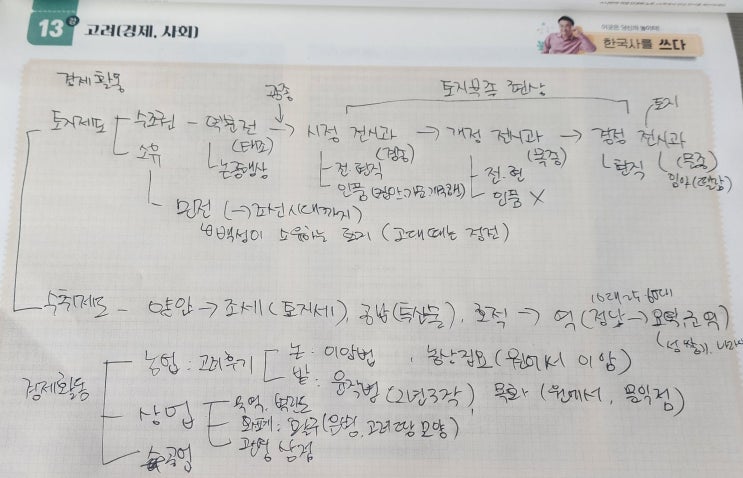 13강 고려(경제, 사회)
이곳은 당신의 놀이터!
한국사를 쓰다
경제활동
토지부족 현상
토지제도 수조권 - 역분전 → 시정 전시과 → 개정 전시과 → 경정 전시과
광종
토지
소유 (태조) (경종) (목종) (문종)
논공행상 전 현직 전.현 현직
인품 인품 X
민전 (→조선시대까지)
백성이 소유하는 토지 (고대때는 정전)
수취제도 - 양안 → 조세(토지세), 공납(특산물), 호적 → 역 (정남 → 요역, 군역)
경제활동
농업 : 고려후기 논 : 이앙법, 농상집요 (원에서 이암)
밭 : 윤작법 (2년3작), 목화 (원에서, 문익점)
상업 무역, 벽란도
화폐 : 활구(은병, 고려땅모양)
관영상점
수공업